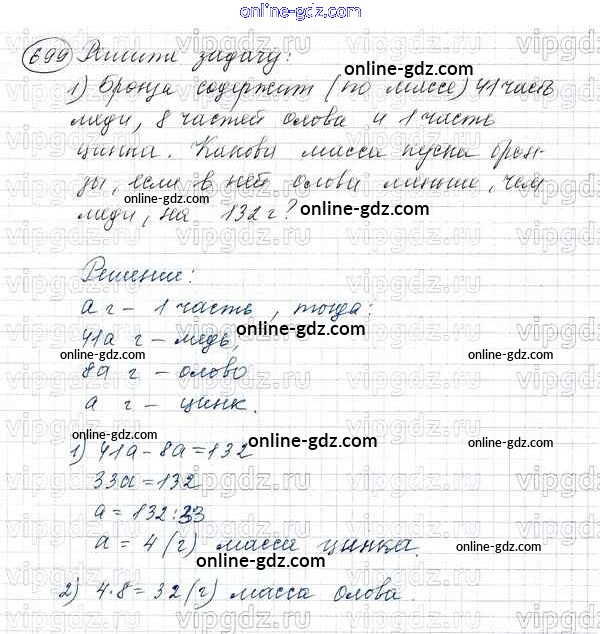 online-gdz.com
699 Решите задачу:
online-gdz.com
1) Бронза содержит (по массе) 41 часть
меди, 8 частей олова и 1 часть
цинка. Какова масса куска брон-
зы, если в ней олова меньше, чем
меди, на 132 г?
online-gdz.com
Решение:
a г – 1 часть, тогда:
online-gdz.com
41a г – медь,
online-gdz.com
online-gdz.com
8a г – олово
online-gdz.com
a г – цинк.
online-gdz.com
online-gdz.com
1) 41a-8a=132
33a=132
a=132:33
a=4 (г) масса цинка.
online-gdz.com
online-gdz.com
2) 4·8=32 (г) масса олова.
online-gdz.com